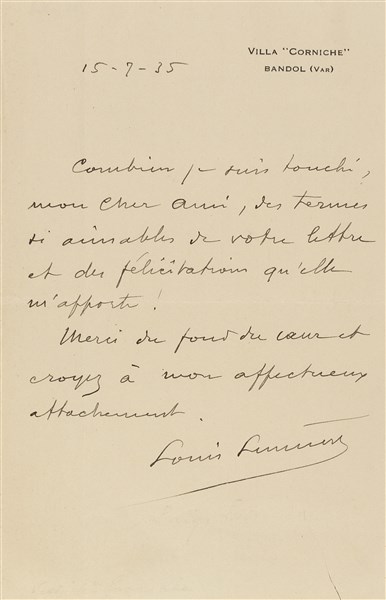 VILLA "CORNICHE"
BANDOL (VAR)
15-7-35
Combien je suis touché,
mon cher ami, des termes
si aimables de votre lettre
et des félicitations qu'elle
m'apporte !
Merci du fond du cœur et
croyez à mon affectueux
attachement.
Louis Lumière